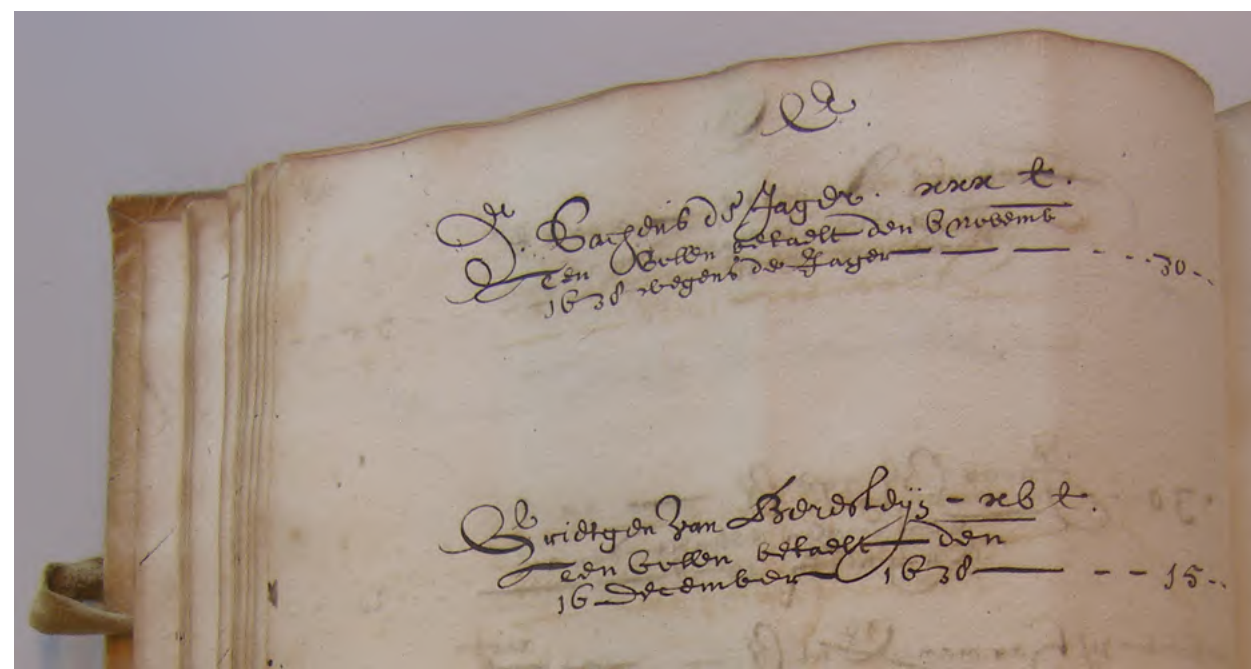 de Jager. xxx £.
Ten vollen betaelt den 6 novemb
1638 wegens de Jager — — - - . . 30 - .
Grietgen van - xv £.
Ten vollen betaelt den
16 December 1638 — - - 15 - .